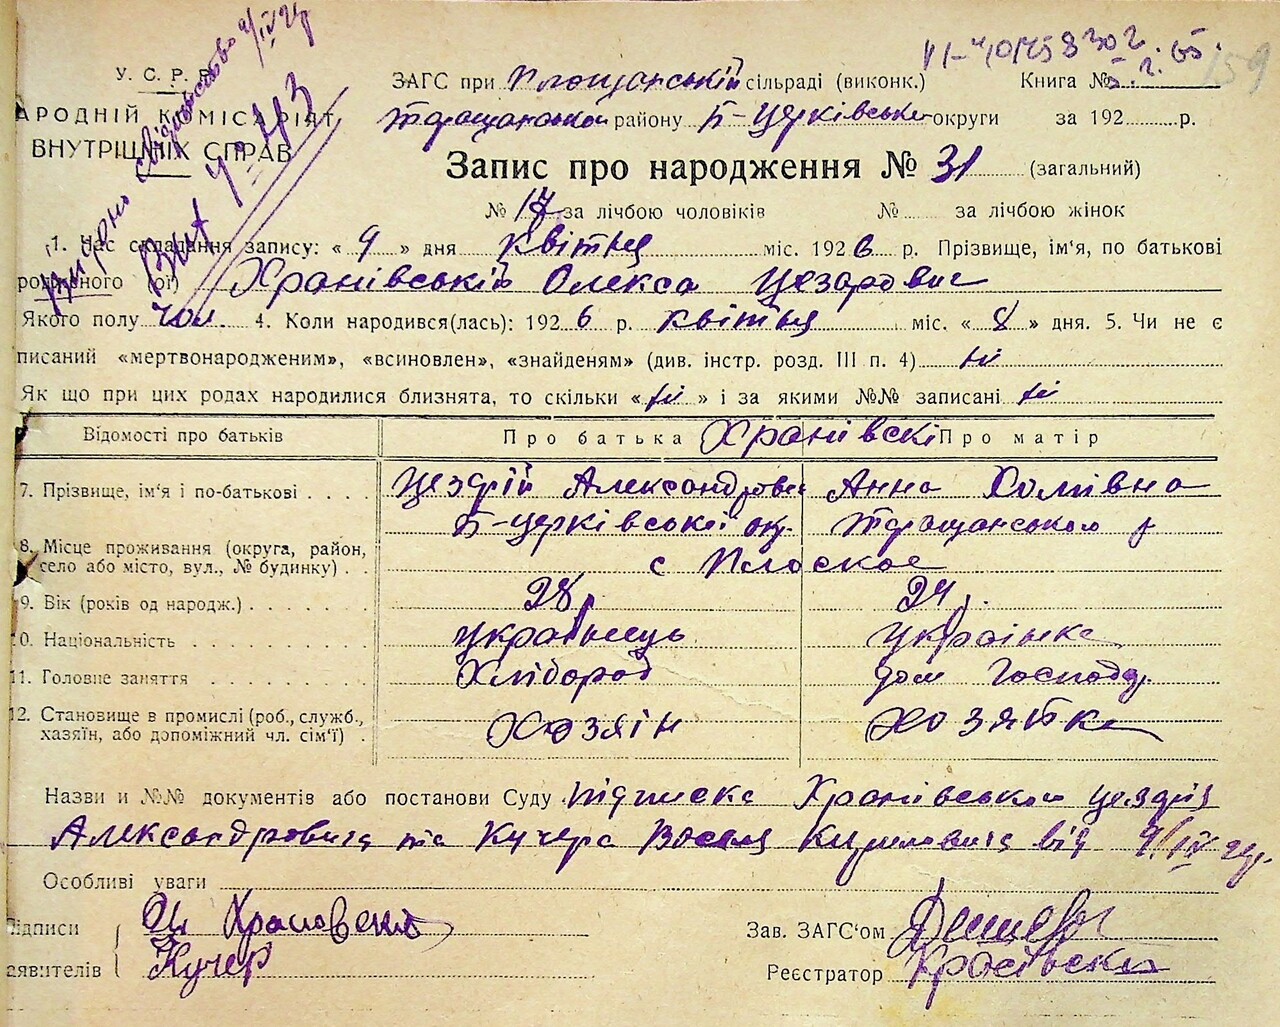 У. С. Р. Р.
АРОДНІЙ КОМІСАРІЯТ
ВНУТРІШНІХ СПРАВ
свідоцтво 9/IV
Вит № 413
159
ЗАГС при Площанській сільраді (виконк.) Книга №
Таращанської району Б-Церківської округи за 192 р.
Запис про народження № 31 (загальний)
№ 17 за лічбою чоловіків № за лічбою жінок
1. Час складання запису: « 9 » дня квітня міс. 192 6 р. Прізвище, ім'я, по батькові
родженого (ої) Хранівський Олекса Цезарович
Якого полу чол. 4. Коли народився(лась): 192 6 р. квітня міс. « 8 » дня. 5. Чи не є
писаний «мертвонародженим», «всиновлен», «знайденям» (див. інстр. розд. III п. 4) ні
Як що при цих родах народилися близнята, то скільки « ні » і за якими №№ записані ні
Відомості про батьків Про батька Хранівскі Про матір
7. Прізвище, ім'я і по-батькові Цездрій Александрович Анна Хомівна
Б-церківської ок. Таращанського р
8. Місце проживання (округа, район,
село або місто, вул., № будинку) с Плоское
9. Вік (років од народж.) 28 р. 24 р.
0. Національність українець українка
11. Головне заняття Хлібороб дом господ.
12. Становище в промислі (роб., служб., хазяїн, або допоміжний чл. сім'ї) Хозяін хозяйка
Назви и №№ документів або постанови Суду підписка Хранівського Цездрія
Александровича та Кучера Василя Кириловича від 9/IV
Особливі уваги
ідписи Храновский
аявителів Кучер
Зав. ЗАГС'ом
Реєстратор